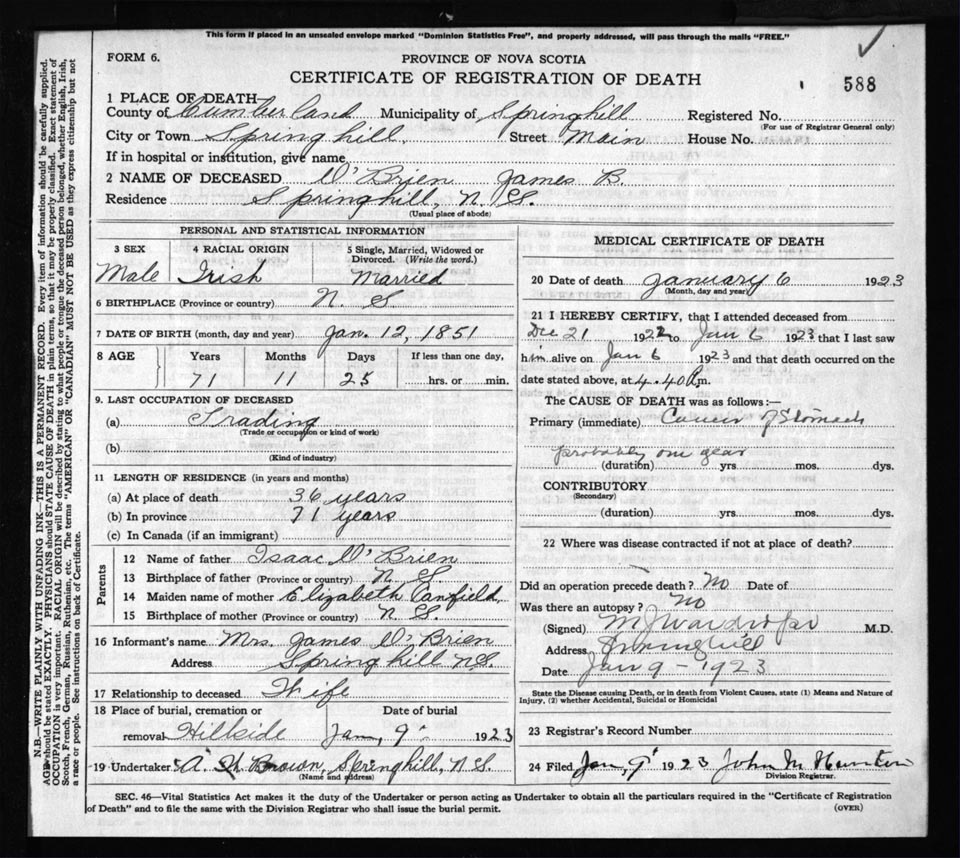 This form if placed in an unsealed envelope marked "Dominion Statistics Free", and properly addressed, will pass through the mails "FREE."
FORM 6.
PROVINCE OF NOVA SCOTIA
CERTIFICATE OF REGISTRATION OF DEATH
588
1 PLACE OF DEATH—
County of Cumberland Municipality of Springhill Registered No.
(For use of Registrar General only)
City or Town Springhill Street Main House No.
If in hospital or institution, give name
2 NAME OF DECEASED O'Brien James B.
Residence Springhill, N.S.
(Usual place of abode)
PERSONAL AND STATISTICAL INFORMATION
3 SEX 4 RACIAL ORIGIN 5 Single, Married, Widowed or Divorced. (Write the word.)
Male Irish Married
6 BIRTHPLACE (Province or country) N. S
7 DATE OF BIRTH (month, day and year) Jan. 12, 1851
8 AGE Years Months Days If less than one day,
71 11 25 hrs. or min.
9. LAST OCCUPATION OF DECEASED
(a) Trading
(Trade or occupation or kind of work)
(b)
(Kind of industry)
11 LENGTH OF RESIDENCE (in years and months)
(a) At place of death 36 years
(b) In province 71 years
(c) In Canada (if an immigrant)
Parents
12 Name of father Isaac O'Brien
13 Birthplace of father (Province or country) N. S.
14 Maiden name of mother Elizabeth Canfield,
15 Birthplace of mother (Province or country) N. S.
16 Informant's name Mrs. James O'Brien
Address Springhill N.S.
17 Relationship to deceased Wife
18 Place of burial, cremation or removal Hillside Date of burial Jan, 9 1923
19 Undertaker A. H Brown, Springhill, N S.
(Name and address)
MEDICAL CERTIFICATE OF DEATH
20 Date of death January 6 1923
(Month, day and year)
21 I HEREBY CERTIFY, that I attended deceased from
Dec 21 1922 to Jan 6 1923 that I last saw
him alive on Jan 6 1923 and that death occurred on the
date stated above, at 4.40 P.m.
The CAUSE OF DEATH was as follows:—
Primary (immediate) Cancer of Stomach
probably one year
(duration) yrs. mos. dys.
CONTRIBUTORY
(Secondary)
(duration) yrs. mos. dys.
22 Where was disease contracted if not at place of death?
Did an operation precede death? No Date of
Was there an autopsy? No
(Signed) M.D.
Address Springhill
Date Jan 9 - 1923
State the Disease causing Death, or in death from Violent Causes, state (1) Means and Nature of
Injury, (2) whether Accidental, Suicidal or Homicidal
23 Registrar's Record Number
24 Filed Jan, 9 1923 John M Hunter
Division Registrar.
SEC. 46—Vital Statistics Act makes it the duty of the Undertaker or person acting as Undertaker to obtain all the particulars required in the "Certificate of Registration
of Death" and to file the same with the Division Registrar who shall issue the burial permit. (OVER)
N.B.—WRITE PLAINLY WITH UNFADING INK—THIS IS A PERMANENT RECORD. Every item of information should be carefully supplied.
AGE should be stated EXACTLY. PHYSICIANS should STATE CAUSE OF DEATH in plain terms, so that it may be properly classified. Exact statement of
OCCUPATION is very important. RACIAL ORIGIN will be described by stating to what people or tongue the deceased person belonged, whether English, Irish,
Scotch, French, German, Russian, Ruthenian, etc. The terms "AMERICAN" OR "CANADIAN" MUST NOT BE USED as they express citizenship but not
a race or people. See instructions on back of Certificate.